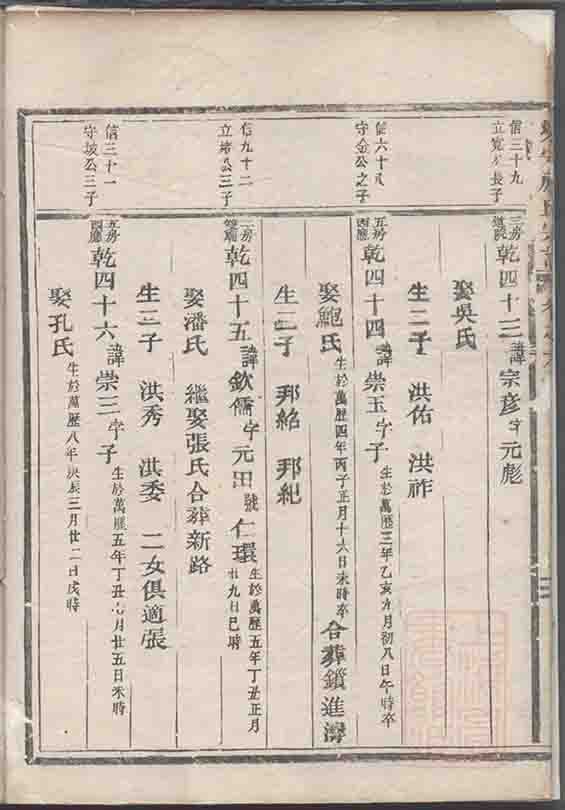 信三十九
立寬公長子
三房
乾四十三 諱宗彦 字元彪
娶吳氏
生二子 洪佑 洪祚
信六十八
守金公之子
五房
乾四十四 諱崇玉 字子 生於萬歷三年乙亥九月初八日午時卒
娶鮑氏 生於萬歷四年丙子正月十六日未時卒 合葬鎖進灣
生二子 邦紹 邦紀
信九十二
立 公三子
二房
乾四十五 諱欽儒 字元田 號仁環 生於萬歷五年丁丑正月
廿九日巳時
娶潘氏 繼娶張氏合葬新路
生二子 洪秀 洪委 二女俱適張
信三十一
守坡公三子
五房
乾四十六 諱崇三 字子 生於萬歷五年丁丑七月廿五日未時
娶孔氏 生於萬歷八年庚辰三月廿二日戌時